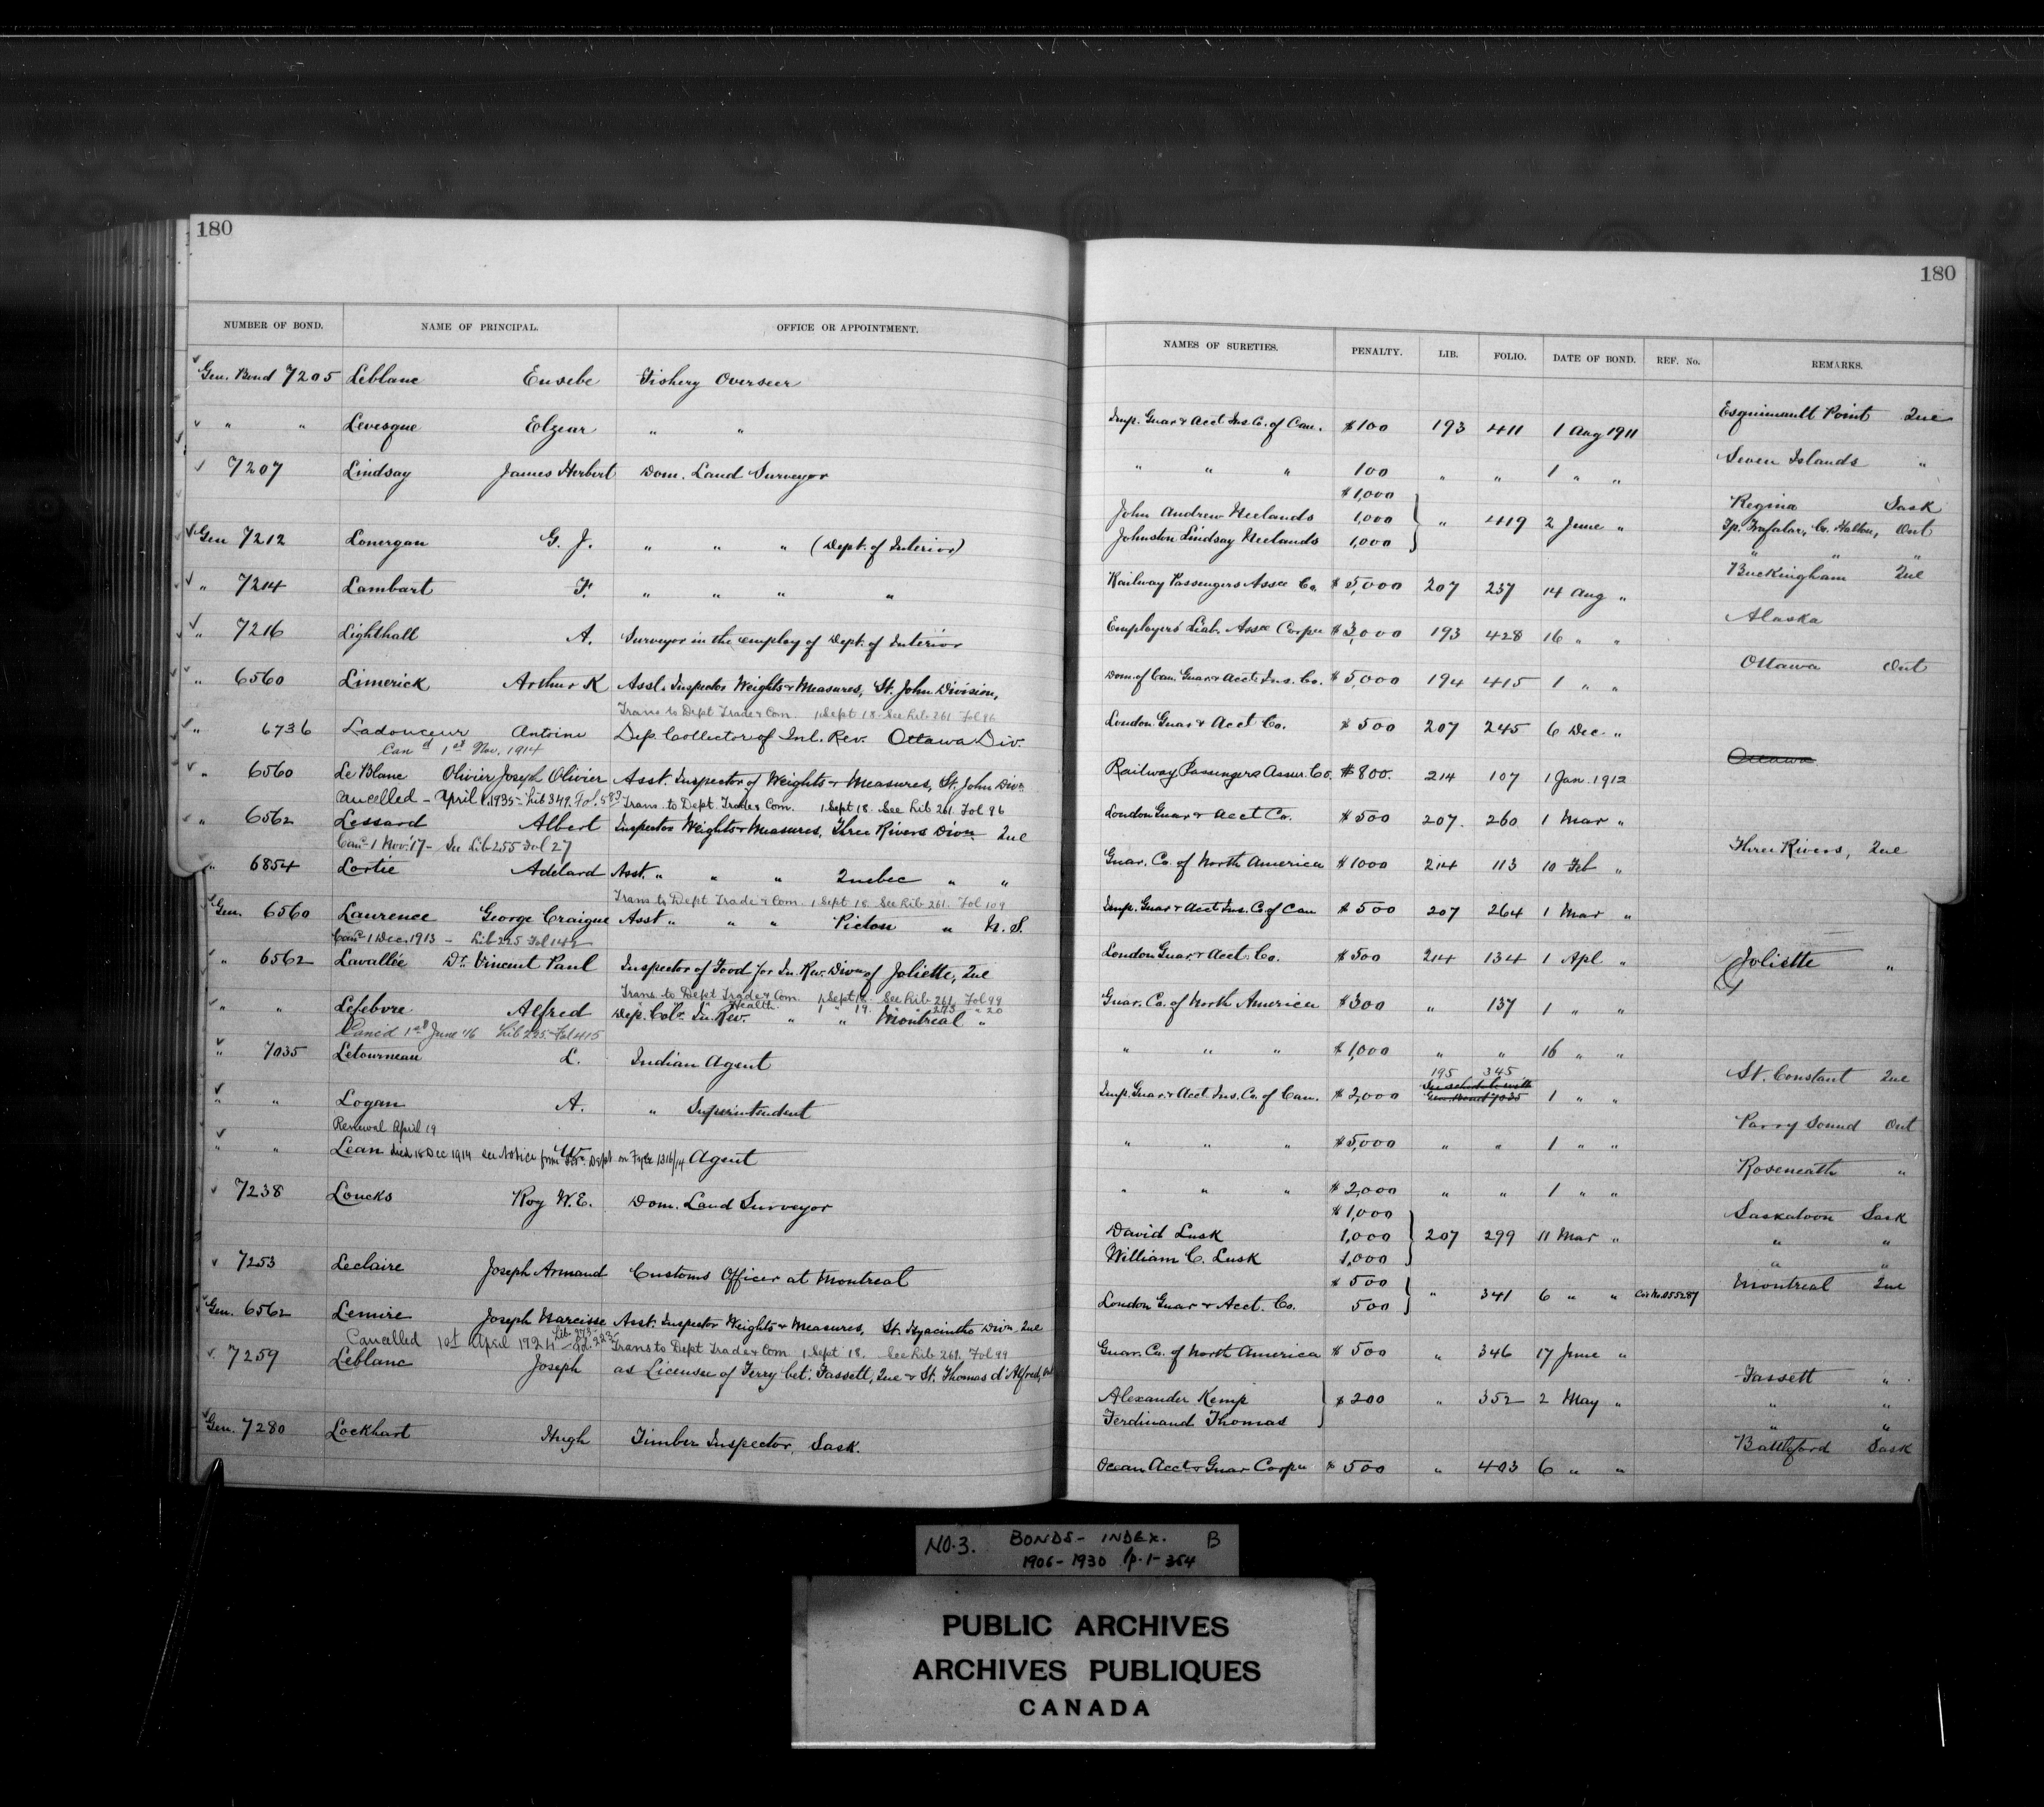 180
NUMBER OF BOND. NAME OF PRINCIPAL. OFFICE OR APPOINTMENT.
Gen. Bond 7205 Leblanc Eusebe Fishery Overseer
" " Levesque Elzear " "
7207 Lindsay James Herbert Dom. Land Surveyor
Gen 7212 Lonergan G. J. " " " (Dept. of Interior)
" 7214 Lambart F. " " " "
" 7216 Lighthall A. Surveyor in the employ of Dept. of Interior
" 6560 Limerick Arthur K Asst. Inspector Weights & Measures, St. John Division,
Trans to Dept Trade & Com. 1 Sept 18. See Lib 261 Fol 96
" 6736 Ladouceur Antoine Dep. Collector of Inl. Rev. Ottawa Div.
Can'd 1st Nov. 1914
" 6560 Le Blanc Olivier Joseph Olivier Asst. Inspector of Weights & Measures, St. John Divn
Cancelled - April 1, 1935 - Lib 349. Fol. 583 Trans. to Dept. Trade & Com. 1 Sept 18. See Lib 261. Fol 96
" 6562 Lessard Albert Inspector Weights & Measures, Three Rivers Divn. Que
Canc 1 Nov. 17 - See Lib 255 Fol 27
" 6854 Lortie Adelard Asst. " " " Quebec " "
Trans to Dept Trade & Com. 1 Sept 18. See Lib 261. Fol 109
Gen. 6560 Laurence George Craigue Asst " " " Pictou " N. S.
Canc 1 Dec. 1913 - Lib 225 Fol 142
" 6562 Lavallée Dr. Vincent Paul Inspector of Food for In. Rev. Divn of Joliette, Que
Trans. to Dept Trade & Com. 1 Sept 18. See Lib 261 Fol 99
" " " Health 1 " 19. " 273 " 20
" " Lefebvre Alfred Dep. Colr. In. Rev. " " Montreal "
Canc'd 1st June '16 Lib 235 - Fol 415
" 7035 Letourneau L. Indian Agent
" " Logan A. " Superintendent
Renewal April 19
" " Lean Wm. Agent
died 18 Dec 1914 see notice from Dept on File 1316/14
7238 Loucks Roy W. E. Dom. Land Surveyor
7253 Leclaire Joseph Armand Customs Officer at Montreal
Gen. 6562 Lemire Joseph Narcisse Asst. Inspector Weights & Measures, St. Hyacinthe Divn Que
Cancelled 1st April 1924 - Lib 273 - Fol. 223 Trans to Dept Trade & Com 1 Sept 18. See Lib 261. Fol 99
7259 Leblanc Joseph as Licensee of Ferry bet. Fassett, Que & St. Thomas d'Alfred, Ont
Gen. 7280 Lockhart Hugh Timber Inspector, Sask.
180
NAMES OF SURETIES. PENALTY. LIB. FOLIO. DATE OF BOND. REF. No. REMARKS.
Imp. Guar & Acct Ins. C. of Can. $100 193 411 1 Aug 1911 Esquimault Point Que
" " " 100 " " 1 " " Seven Islands "
$1,000 Regina Sask
John Andrew Neelands 1,000 " 419 2 June " Tp. Trafalar, Co. Halton, Ont
Johnston Lindsay Neelands 1,000 " " "
Railway Passengers Assce Co. $5,000 207 237 14 Aug " Buckingham Que
Employers' Liab. Assce Corpn $3,000 193 428 16 " " Alaska
Dom. of Can. Guar. & Acct. Ins. Co. $5,000 194 415 1 " " Ottawa Ont
London Guar & Acct Co. $500 207 245 6 Dec. "
Railway Passengers Assur. Co. $800. 214 107 1 Jan. 1912 Ottawa
London Guar & Acct Co. $500 207. 260 1 Mar "
Guar. Co. of North America $1000 214 113 10 Feb " Three Rivers, Que
Imp. Guar & Acct Ins. C. of Can $500 207 264 1 Mar "
London Guar & Acct. Co. $500 214 134 1 Apl. "
Guar. Co. of North America $300 " 137 1 " " Joliette "
" " " $1,000 " " 16 " "
195 345
Imp. Guar & Acct Ins. Co. of Can. $2,000 See schedule with Gen. Bond 7035 1 " " St. Constant Que
" " " $5,000 " " 1 " " Parry Sound Ont
" " " $2,000 " " 1 " " Roseneath "
$1,000 Saskatoon Sask
David Lusk 1,000 207 299 11 Mar " " "
William C. Lusk 1,000 " "
$500 Montreal Que
London Guar & Acct. Co. 500 " 341 6 " "
Guar. Co. of North America $500 " 346 17 June "
Fassett "
Alexander Kemp $200 " 352 2 May " " "
Ferdinand Thomas " "
Ocean Acct & Guar Corpn $500 " 403 6 " " Battleford Sask
NO. 3. BONDS - INDEX. B
1906 - 1930 p. 1 - 364
PUBLIC ARCHIVES
ARCHIVES PUBLIQUES
CANADA